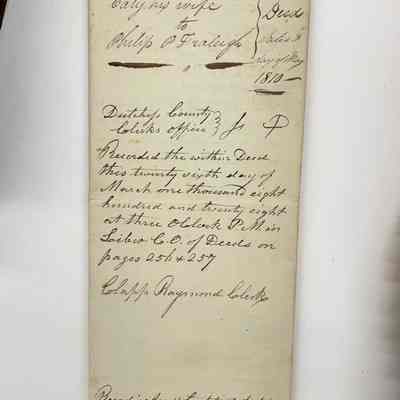 Caty his wife
to
Philip P Fraleigh
Deed
Dated
day of May
1810
Dutchess County
Clerks office } Ss
Recorded the within Deed
this twenty sixth day of
March one thousand eight
hundred and twenty eight
at three OClock P.M. in
Liber C.O. of Deeds on
pages 256 & 257
Clapp Raymond Clerk